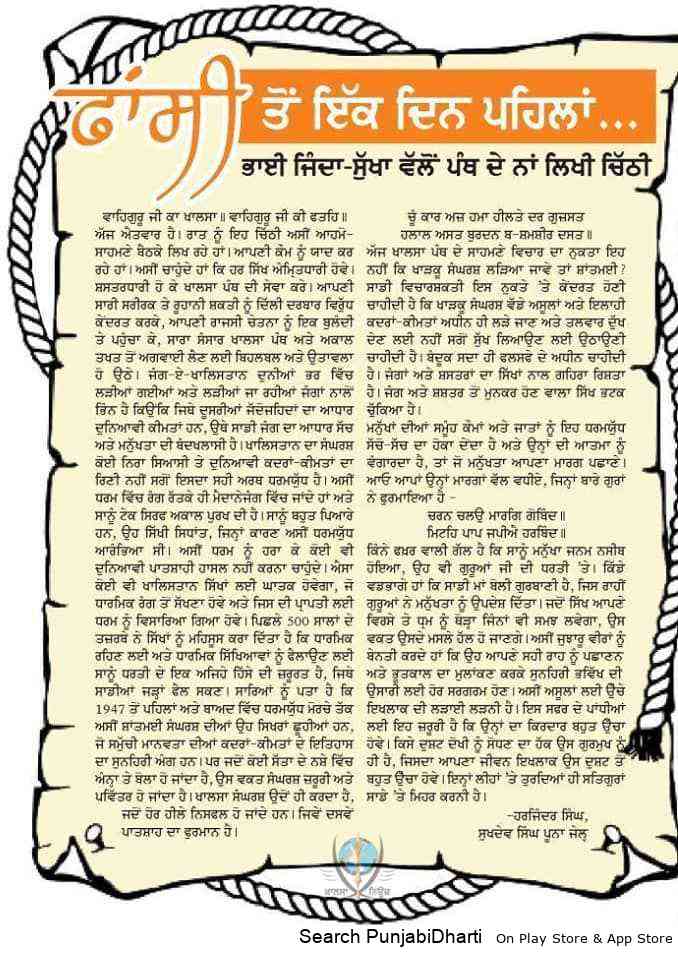 ਫਾਂਸੀ ਤੋਂ ਇੱਕ ਦਿਨ ਪਹਿਲਾਂ...
ਭਾਈ ਜਿੰਦਾ-ਸੁੱਖਾ ਵੱਲੋਂ ਪੰਥ ਦੇ ਨਾਂ ਲਿਖੀ ਚਿੱਠੀ
ਵਾਹਿਗੁਰੂ ਜੀ ਕਾ ਖਾਲਸਾ॥ ਵਾਹਿਗੁਰੂ ਜੀ ਕੀ ਫਤਹਿ॥
ਅੱਜ ਐਤਵਾਰ ਹੈ। ਰਾਤ ਨੂੰ ਇਹ ਚਿੱਠੀ ਅਸੀਂ ਆਹਮੋ-
ਸਾਹਮਣੇ ਬੈਠਕੇ ਲਿਖ ਰਹੇ ਹਾਂ। ਆਪਣੀ ਕੌਮ ਨੂੰ ਯਾਦ ਕਰ
ਰਹੇ ਹਾਂ। ਅਸੀਂ ਚਾਹੁੰਦੇ ਹਾਂ ਕਿ ਹਰ ਸਿੱਖ ਅੰਮ੍ਰਿਤਧਾਰੀ ਹੋਵੇ।
ਸ਼ਸਤਰਧਾਰੀ ਹੋ ਕੇ ਖਾਲਸਾ ਪੰਥ ਦੀ ਸੇਵਾ ਕਰੇ। ਆਪਣੀ
ਸਾਰੀ ਸਰੀਰਕ ਤੇ ਰੂਹਾਨੀ ਸ਼ਕਤੀ ਨੂੰ ਦਿੱਲੀ ਦਰਬਾਰ ਵਿਰੁੱਧ
ਕੇਂਦਰਤ ਕਰਕੇ, ਆਪਣੀ ਰਾਜਸੀ ਚੇਤਨਾ ਨੂੰ ਇਕ ਬੁਲੰਦੀ
ਤੇ ਪਹੁੰਚਾ ਕੇ, ਸਾਰਾ ਸੰਸਾਰ ਖਾਲਸਾ ਪੰਥ ਅਤੇ ਅਕਾਲ
ਤਖਤ ਤੋਂ ਅਗਵਾਈ ਲੈਣ ਲਈ ਬਿਹਲਬਲ ਅਤੇ ਉਤਾਵਲਾ
ਹੋ ਉਠੇ। ਜੰਗ-ਏ-ਖਾਲਿਸਤਾਨ ਦੁਨੀਆਂ ਭਰ ਵਿੱਚ
ਲੜੀਆਂ ਗਈਆਂ ਅਤੇ ਲੜੀਆਂ ਜਾ ਰਹੀਆਂ ਜੰਗਾਂ ਨਾਲੋਂ
ਭਿੰਨ ਹੈ ਕਿਉਂਕਿ ਜਿਥੇ ਦੂਸਰੀਆਂ ਜੱਦੋਜਹਿਦਾਂ ਦਾ ਆਧਾਰ
ਦੁਨਿਆਵੀ ਕੀਮਤਾਂ ਹਨ, ਉਥੇ ਸਾਡੀ ਜੰਗ ਦਾ ਆਧਾਰ ਸੱਚ
ਅਤੇ ਮਨੁੱਖਤਾ ਦੀ ਬੰਦਖਲਾਸੀ ਹੈ। ਖਾਲਿਸਤਾਨ ਦਾ ਸੰਘਰਸ਼
ਕੋਈ ਨਿਰਾ ਸਿਆਸੀ ਤੇ ਦੁਨਿਆਵੀ ਕਦਰਾਂ-ਕੀਮਤਾਂ ਦਾ
ਰਿਣੀ ਨਹੀਂ ਸਗੋਂ ਇਸਦਾ ਸਹੀ ਅਰਥ ਧਰਮਯੁੱਧ ਹੈ। ਅਸੀਂ
ਧਰਮ ਵਿੱਚ ਰੰਗ ਰੱਤਕੇ ਹੀ ਮੈਦਾਨੇਜੰਗ ਵਿੱਚ ਜਾਂਦੇ ਹਾਂ ਅਤੇ
ਸਾਨੂੰ ਟੇਕ ਸਿਰਫ ਅਕਾਲ ਪੁਰਖ ਦੀ ਹੈ। ਸਾਨੂੰ ਬਹੁਤ ਪਿਆਰੇ
ਹਨ, ਉਹ ਸਿੱਖੀ ਸਿਧਾਂਤ, ਜਿਨ੍ਹਾਂ ਕਾਰਣ ਅਸੀਂ ਧਰਮਯੁੱਧ
ਆਰੰਭਿਆ ਸੀ। ਅਸੀਂ ਧਰਮ ਨੂੰ ਹਰਾ ਕੇ ਕੋਈ ਵੀ
ਦੁਨਿਆਵੀ ਪਾਤਸ਼ਾਹੀ ਹਾਸਲ ਨਹੀਂ ਕਰਨਾ ਚਾਹੁੰਦੇ। ਐਸਾ
ਕੋਈ ਵੀ ਖਾਲਿਸਤਾਨ ਸਿੱਖਾਂ ਲਈ ਘਾਤਕ ਹੋਵੇਗਾ, ਜੋ
ਧਾਰਮਿਕ ਰੰਗ ਤੋਂ ਸੱਖਣਾ ਹੋਵੇ ਅਤੇ ਜਿਸ ਦੀ ਪ੍ਰਾਪਤੀ ਲਈ
ਧਰਮ ਨੂੰ ਵਿਸਾਰਿਆ ਗਿਆ ਹੋਵੇ। ਪਿਛਲੇ 500 ਸਾਲਾਂ ਦੇ
ਤਜ਼ਰਬੇ ਨੇ ਸਿੱਖਾਂ ਨੂੰ ਮਹਿਸੂਸ ਕਰਾ ਦਿੱਤਾ ਹੈ ਕਿ ਧਾਰਮਿਕ
ਰਹਿਣ ਲਈ ਅਤੇ ਧਾਰਮਿਕ ਸਿੱਖਿਆਵਾਂ ਨੂੰ ਫੈਲਾਉਣ ਲਈ
ਸਾਨੂੰ ਧਰਤੀ ਦੇ ਇਕ ਅਜਿਹੇ ਹਿੱਸੇ ਦੀ ਜ਼ਰੂਰਤ ਹੈ, ਜਿਥੇ
ਸਾਡੀਆਂ ਜੜ੍ਹਾਂ ਫੈਲ ਸਕਣ। ਸਾਰਿਆਂ ਨੂੰ ਪਤਾ ਹੈ ਕਿ
1947 ਤੋਂ ਪਹਿਲਾਂ ਅਤੇ ਬਾਅਦ ਵਿੱਚ ਧਰਮਯੁੱਧ ਮੋਰਚੇ ਤੱਕ
ਅਸੀਂ ਸ਼ਾਂਤਮਈ ਸੰਘਰਸ਼ ਦੀਆਂ ਉਹ ਸਿਖਰਾਂ ਛੂਹੀਆਂ ਹਨ,
ਜੋ ਸਮੁੱਚੀ ਮਾਨਵਤਾ ਦੀਆਂ ਕਦਰਾਂ-ਕੀਮਤਾਂ ਦੇ ਇਤਿਹਾਸ
ਦਾ ਸੁਨਹਿਰੀ ਅੰਗ ਹਨ। ਪਰ ਜਦੋਂ ਕੋਈ ਸੱਤਾ ਦੇ ਨਸ਼ੇ ਵਿੱਚ
ਅੰਨ੍ਹਾ ਤੇ ਬੋਲਾ ਹੋ ਜਾਂਦਾ ਹੈ, ਉਸ ਵਕਤ ਸੰਘਰਸ਼ ਜ਼ਰੂਰੀ ਅਤੇ
ਪਵਿੱਤਰ ਹੋ ਜਾਂਦਾ ਹੈ। ਖਾਲਸਾ ਸੰਘਰਸ਼ ਉਦੋਂ ਹੀ ਕਰਦਾ ਹੈ,
ਜਦੋਂ ਹੋਰ ਹੀਲੇ ਨਿਸਫਲ ਹੋ ਜਾਂਦੇ ਹਨ। ਜਿਵੇਂ ਦਸਵੇਂ
ਪਾਤਸ਼ਾਹ ਦਾ ਫੁਰਮਾਨ ਹੈ।
ਚੂੰ ਕਾਰ ਅਜ਼ ਹਮਾ ਹੀਲਤੇ ਦਰ ਗੁਜ਼ਸਤ
ਹਲਾਲ ਅਸਤ ਬੁਰਦਨ ਬ-ਸ਼ਮਸ਼ੀਰ ਦਸਤ॥
ਅੱਜ ਖਾਲਸਾ ਪੰਥ ਦੇ ਸਾਹਮਣੇ ਵਿਚਾਰ ਦਾ ਨੁਕਤਾ ਇਹ
ਨਹੀਂ ਕਿ ਖਾੜਕੂ ਸੰਘਰਸ਼ ਲੜਿਆ ਜਾਵੇ ਤਾਂ ਸ਼ਾਂਤਮਈ?
ਸਾਡੀ ਵਿਚਾਰਸ਼ਕਤੀ ਇਸ ਨੁਕਤੇ 'ਤੇ ਕੇਂਦਰਤ ਹੋਣੀ
ਚਾਹੀਦੀ ਹੈ ਕਿ ਖਾੜਕੂ ਸੰਘਰਸ਼ ਵੱਡੇ ਅਸੂਲਾਂ ਅਤੇ ਇਲਾਹੀ
ਕਦਰਾਂ-ਕੀਮਤਾਂ ਅਧੀਨ ਹੀ ਲੜੇ ਜਾਣ ਅਤੇ ਤਲਵਾਰ ਦੁੱਖ
ਦੇਣ ਲਈ ਨਹੀਂ ਸਗੋਂ ਸੁੱਖ ਲਿਆਉਣ ਲਈ ਉਠਾਉਣੀ
ਚਾਹੀਦੀ ਹੈ। ਬੰਦੂਕ ਸਦਾ ਹੀ ਫਲਸਫੇ ਦੇ ਅਧੀਨ ਚਾਹੀਦੀ
ਹੈ। ਜੰਗਾਂ ਅਤੇ ਸ਼ਸਤਰਾਂ ਦਾ ਸਿੱਖਾਂ ਨਾਲ ਗਹਿਰਾ ਰਿਸ਼ਤਾ
ਹੈ। ਜੰਗ ਅਤੇ ਸ਼ਸ਼ਤਰ ਤੋਂ ਮੁਨਕਰ ਹੋਣ ਵਾਲਾ ਸਿੱਖ ਭਟਕ
ਚੁੱਕਿਆ ਹੈ।
ਮਨੁੱਖਾਂ ਦੀਆਂ ਸਮੂੰਹ ਕੌਮਾਂ ਅਤੇ ਜਾਤਾਂ ਨੂੰ ਇਹ ਧਰਮਯੁੱਧ
ਸੱਚੋ-ਸੱਚ ਦਾ ਹੋਕਾ ਦੇਂਦਾ ਹੈ ਅਤੇ ਉਨ੍ਹਾਂ ਦੀ ਆਤਮਾ ਨੂੰ
ਵੰਗਾਰਦਾ ਹੈ, ਤਾਂ ਜੋ ਮਨੁੱਖਤਾ ਆਪਣਾ ਮਾਰਗ ਪਛਾਣੇ।
ਆਓ ਆਪਾਂ ਉਨ੍ਹਾਂ ਮਾਰਗਾਂ ਵੱਲ ਵਧੀਏ, ਜਿਨ੍ਹਾਂ ਬਾਰੇ ਗੁਰਾਂ
ਨੇ ਫੁਰਮਾਇਆ ਹੈ -
ਚਰਨ ਚਲਉ ਮਾਰਗਿ ਗੋਬਿੰਦ॥
ਮਿਟਹਿ ਪਾਪ ਜਪੀਐ ਹਰਬਿੰਦ॥
ਕਿੰਨੇ ਫਖ਼ਰ ਵਾਲੀ ਗੱਲ ਹੈ ਕਿ ਸਾਨੂੰ ਮਨੁੱਖਾ ਜਨਮ ਨਸੀਬ
ਹੋਇਆ, ਉਹ ਵੀ ਗੁਰੂਆਂ ਜੀ ਦੀ ਧਰਤੀ 'ਤੇ। ਕਿੱਡੇ
ਵਡਭਾਗੇ ਹਾਂ ਕਿ ਸਾਡੀ ਮਾਂ ਬੋਲੀ ਗੁਰਬਾਣੀ ਹੈ, ਜਿਸ ਰਾਹੀਂ
ਗੁਰੂਆਂ ਨੇ ਮਨੁੱਖਤਾ ਨੂੰ ਉਪਦੇਸ਼ ਦਿੱਤਾ। ਜਦੋਂ ਸਿੱਖ ਆਪਣੇ
ਵਿਰਸੇ ਤੇ ਧੁਮ ਨੂੰ ਥੋੜਾ ਜਿੰਨਾਂ ਵੀ ਸਮਝ ਲਵੇਗਾ, ਉਸ
ਵਕਤ ਉਸਦੇ ਮਸਲੇ ਹੱਲ ਹੋ ਜਾਣਗੇ। ਅਸੀਂ ਜੁਝਾਰੂ ਵੀਰਾਂ ਨੂੰ
ਬੇਨਤੀ ਕਰਦੇ ਹਾਂ ਕਿ ਉਹ ਆਪਣੇ ਸਹੀ ਰਾਹ ਨੂੰ ਪਛਾਣਨ
ਅਤੇ ਭੂਤਕਾਲ ਦਾ ਮੁਲਾਂਕਣ ਕਰਕੇ ਸੁਨਹਿਰੀ ਭਵਿੱਖ ਦੀ
ਉਸਾਰੀ ਲਈ ਹੋਰ ਸਰਗਰਮ ਹੋਣ। ਅਸੀਂ ਅਸੂਲਾਂ ਲਈ ਉੱਚੇ
ਇਖਲਾਕ ਦੀ ਲੜਾਈ ਲੜਨੀ ਹੈ। ਇਸ ਸਫਰ ਦੇ ਪਾਂਧੀਆਂ
ਲਈ ਇਹ ਜ਼ਰੂਰੀ ਹੈ ਕਿ ਉਨ੍ਹਾਂ ਦਾ ਕਿਰਦਾਰ ਬਹੁਤ ਉੱਚਾ
ਹੋਵੇ। ਕਿਸੇ ਦੁਸ਼ਟ ਦੋਖੀ ਨੂੰ ਸੋਧਣ ਦਾ ਹੱਕ ਉਸ ਗੁਰਮੁਖ ਨੂੰ
ਹੀ ਹੈ, ਜਿਸਦਾ ਆਪਣਾ ਜੀਵਨ ਇਖਲਾਕ ਉਸ ਦੁਸ਼ਟ ਤੋਂ
ਬਹੁਤ ਉੱਚਾ ਹੋਵੇ। ਇਨ੍ਹਾਂ ਲੀਹਾਂ 'ਤੇ ਤੁਰਦਿਆਂ ਹੀ ਸਤਿਗੁਰਾਂ
ਸਾਡੇ 'ਤੇ ਮਿਹਰ ਕਰਨੀ ਹੈ।
-ਹਰਜਿੰਦਰ ਸਿੰਘ,
ਸੁਖਦੇਵ ਸਿੰਘ ਪੂਨਾ ਜੇਲ੍ਹ
ਖਾਲਸਾ ਨਿਊਜ਼
Search PunjabiDharti On Play Store & App Store